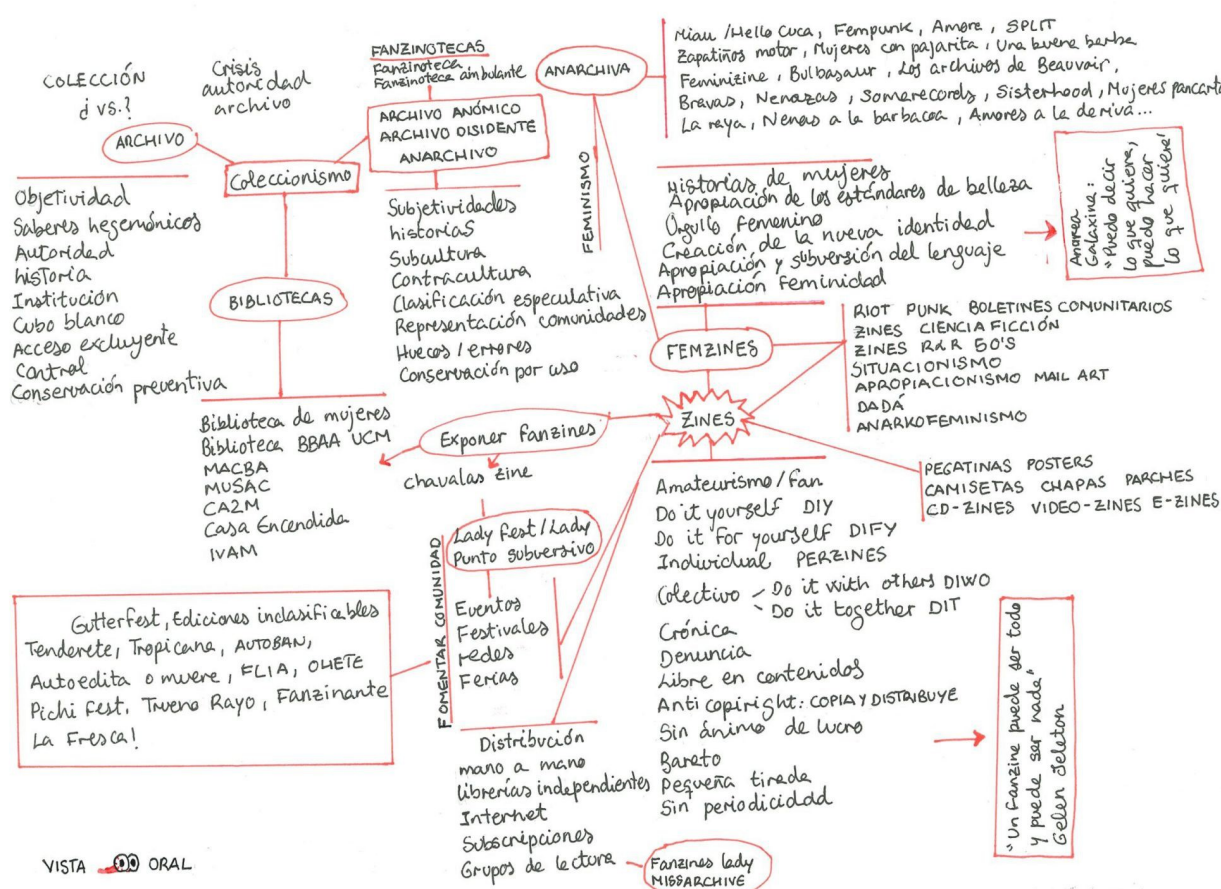 COLECCIÓN
¿ vs.?
ARCHIVO
Crisis
autoridad
archivo
Coleccionismo
Objetividad
Saberes hegemónicos
Autoridad
historia
Institución
Cubo blanco
Acceso excluyente
Control
Conservación preventiva
BIBLIOTECAS
Biblioteca de mujeres
Biblioteca BBAA UCM
MACBA
MUSAC
CA2M
Casa Encendida
IVAM
FANZINOTECAS
Fanzinoteca
Fanzinoteca ambulante
ARCHIVO ANÓMICO
ARCHIVO DISIDENTE
ANARCHIVO
Subjetividades
historias
Subcultura
Contracultura
Clasificación especulativa
Representación comunidades
Huecos / errores
Conservación por uso
FEMINISMO
ANARCHIVA
Miau /Hello Cuca, Fempunk, Amore, SPLIT
Zapatiños motor, Mujeres con pajarita, Una buena barba
Feminizine, Bulbasaur, Los archivos de Beauvair,
Bravas, Nenazas, Somerecords, Sisterhood, Mujeres pancarta
La raya, Nenas a la barbacoa, Amores a la deriva...
Historias de mujeres
Apropiación de los estándares de belleza
Orgullo femenino
Creación de la nueva identidad
Apropiación y subversión del lenguaje
Apropiación feminidad
Andrea
Galaxina:
"Puedo decir
lo que quiera,
puedo hacer
lo que quiera"
FEMZINES
RIOT PUNK BOLETINES COMUNITARIOS
ZINES CIENCIA FICCIÓN
ZINES R&R 50'S
SITUACIONISMO
APROPIACIONISMO MAIL ART
DADÁ
ANARKOFEMINISMO
ZINES
PEGATINAS POSTERS
CAMISETAS CHAPAS PARCHES
CD-ZINES VIDEO-ZINES E-ZINES
Exponer fanzines
chavalas zine
Lady Fest/Lady
Punto subversivo
FOMENTAR COMUNIDAD
Eventos
Festivales
redes
Ferias
Gutterfest, Ediciones inclasificables
Tenderete, Tropicana, AUTOBAN,
Autoedita o muere, FLIA, OHETE
Pichi Fest, Trueno Rayo, Fanzinante
La Fresca!
Distribución
mano a mano
librerías independientes
Internet
Subscripciones
Grupos de lectura
Fanzines lady
MISSARCHIVE
Amateurismo/fan
Do it yourself DIY
Do it for yourself DIFY
Individual PERZINES
Colectivo - Do it with others DIWO
- Do it together DIT
Crónica
Denuncia
Libre en contenidos
Anti copiright: COPIA Y DISTRIBUYE
Sin ánimo de lucro
Barato
Pequeña tirada
Sin periodicidad
"Un fanzine puede ser todo
y puede ser nada"
Gelen Jeleton
VISTA ORAL